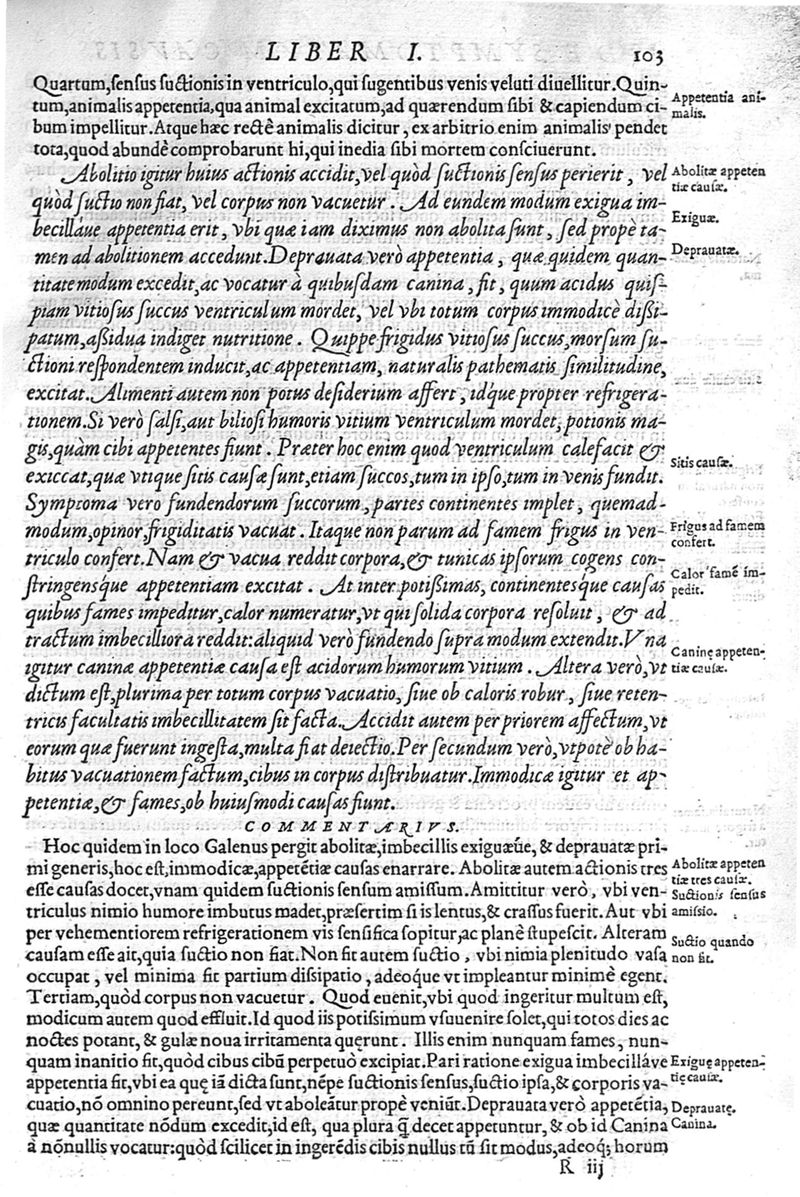 LIBER I. 103
Quartum, sensus suctionis in ventriculo, qui sugentibus venis veluti diuellitur. Quin-
tum, animalis appetentia, qua animal excitatum, ad quærendum sibi & capiendum ci-
bum impellitur. Atque hæc rectè animalis dicitur, ex arbitrio enim animalis pendet
tota, quod abundè comprobarunt hi, qui inedia sibi mortem consciuerunt.
Appetentia ani-
malis.
Abolitio igitur huius actionis accidit, vel quòd suctionis sensus perierit, vel
quòd suctio non fiat, vel corpus non vacuetur. Ad eundem modum exigua im-
becilláue appetentia erit, vbi quæ iam diximus non abolita sunt, sed propè ta-
men ad abolitionem accedunt. Deprauata verò appetentia, quæ quidem quan-
titate modum excedit, ac vocatur à quibusdam canina, fit, quum acidus quis-
piam vitiosus succus ventriculum mordet, vel vbi totum corpus immodicè dissi-
patum, assidua indiget nutritione. Quippe frigidus vitiosus succus, morsum su-
ctioni respondentem inducit, ac appetentiam, naturalis pathematis similitudine,
excitat. Alimenti autem non potus desiderium affert, idque propter refrigera-
tionem. Si verò salsi, aut biliosi humoris vitium ventriculum mordet, potionis ma-
gis, quàm cibi appetentes fiunt. Præter hoc enim quod ventriculum calefacit &
exiccat, quæ vtique sitis causæ sunt, etiam succos, tum in ipso, tum in venis fundit.
Symptoma vero fundendorum succorum, partes continentes implet, quemad-
modum, opinor, frigiditatis vacuat. Itaque non parum ad famem frigus in ven-
triculo confert. Nam & vacua reddit corpora, & tunicas ipsorum cogens con-
stringensque appetentiam excitat. At inter potissimas, continentesque causas
quibus fames impeditur, calor numeratur, vt qui solida corpora resoluit, & ad
tractum imbecilliora reddit: aliquid verò fundendo supra modum extendit. Vna
igitur caninæ appetentiæ causa est acidorum humorum vitium. Altera verò, vt
dictum est, plurima per totum corpus vacuatio, siue ob caloris robur, siue reten-
tricis facultatis imbecillitatem sit facta. Accidit autem per priorem affectum, vt
eorum quæ fuerunt ingesta, multa fiat deiectio. Per secundum verò, vtpotè ob ha-
bitus vacuationem factum, cibus in corpus distribuatur. Immodicæ igitur et ap-
petentiæ, & fames, ob huiusmodi causas fiunt.
Abolitæ appeten
tiæ causæ.
Exiguæ.
Deprauatæ.
Sitis causæ.
Frigus ad famem
confert.
Calor famē im-
pedit.
Caninę appeten-
tiæ causæ.
COMMENTARIVS.
Hoc quidem in loco Galenus pergit abolitæ, imbecillis exiguæúe, & deprauatæ pri-
mi generis, hoc est, immodicæ, appetētiæ causas enarrare. Abolitæ autem actionis tres
esse causas docet, vnam quidem suctionis sensum amissum. Amittitur verò, vbi ven-
triculus nimio humore imbutus madet, præsertim si is lentus, & crassus fuerit. Aut vbi
per vehementiorem refrigerationem vis sensifica sopitur, ac planè stupescit. Alteram
causam esse ait, quia suctio non fiat. Non fit autem suctio, vbi nimia plenitudo vasa
occupat, vel minima fit partium dissipatio, adeoque vt impleantur minimè egent.
Tertiam, quòd corpus non vacuetur. Quod euenit, vbi quod ingeritur multum est,
modicum autem quod effluit. Id quod iis potissimum vsuuenire solet, qui totos dies ac
noctes potant, & gulæ noua irritamenta quęrunt. Illis enim nunquam fames, nun-
quam inanitio fit, quòd cibus cibū perpetuò excipiat. Pari ratione exigua imbecilláve
appetentia fit, vbi ea quę iā dicta sunt, nēpe suctionis sensus, suctio ipsa, & corporis va-
cuatio, nō omnino pereunt, sed vt aboleātur propè veniūt. Deprauata verò appetētia,
quæ quantitate nōdum excedit, id est, qua plura q̄ decet appetuntur, & ob id Canina
à nōnullis vocatur: quòd scilicet in ingerēdis cibis nullus tū sit modus, adeoq; horum
Abolitæ appeten
tiæ tres causæ.
Suctionis sensus
amissio.
Suctio quando
non fit.
Exiguę appeten-
tię causæ.
Deprauatę.
Canina.
R iij